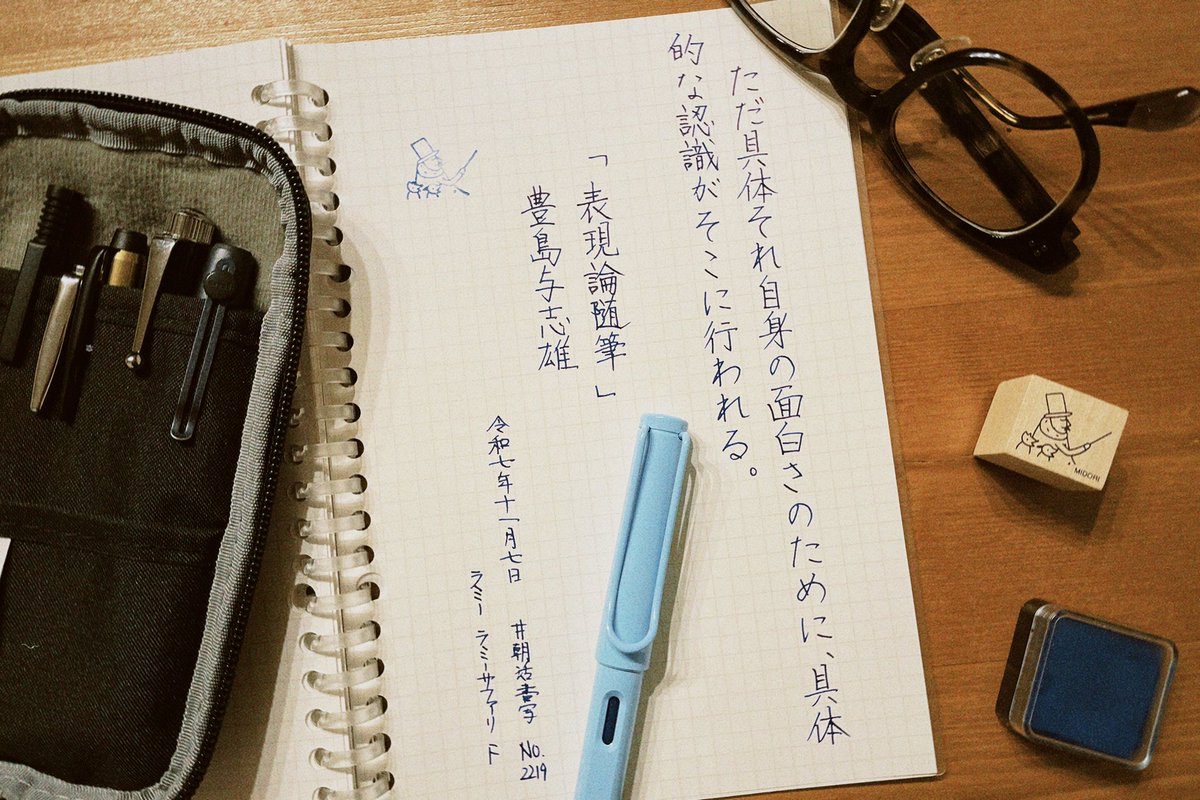 ただ具体それ自身の面白さのために、具体
的な認識がそこに行われる。
「表現論随筆」
豊島与志雄
令和七年十一月七日
#朝活書写 No.2219
ラミー ラミーサファリ F
MIDORI